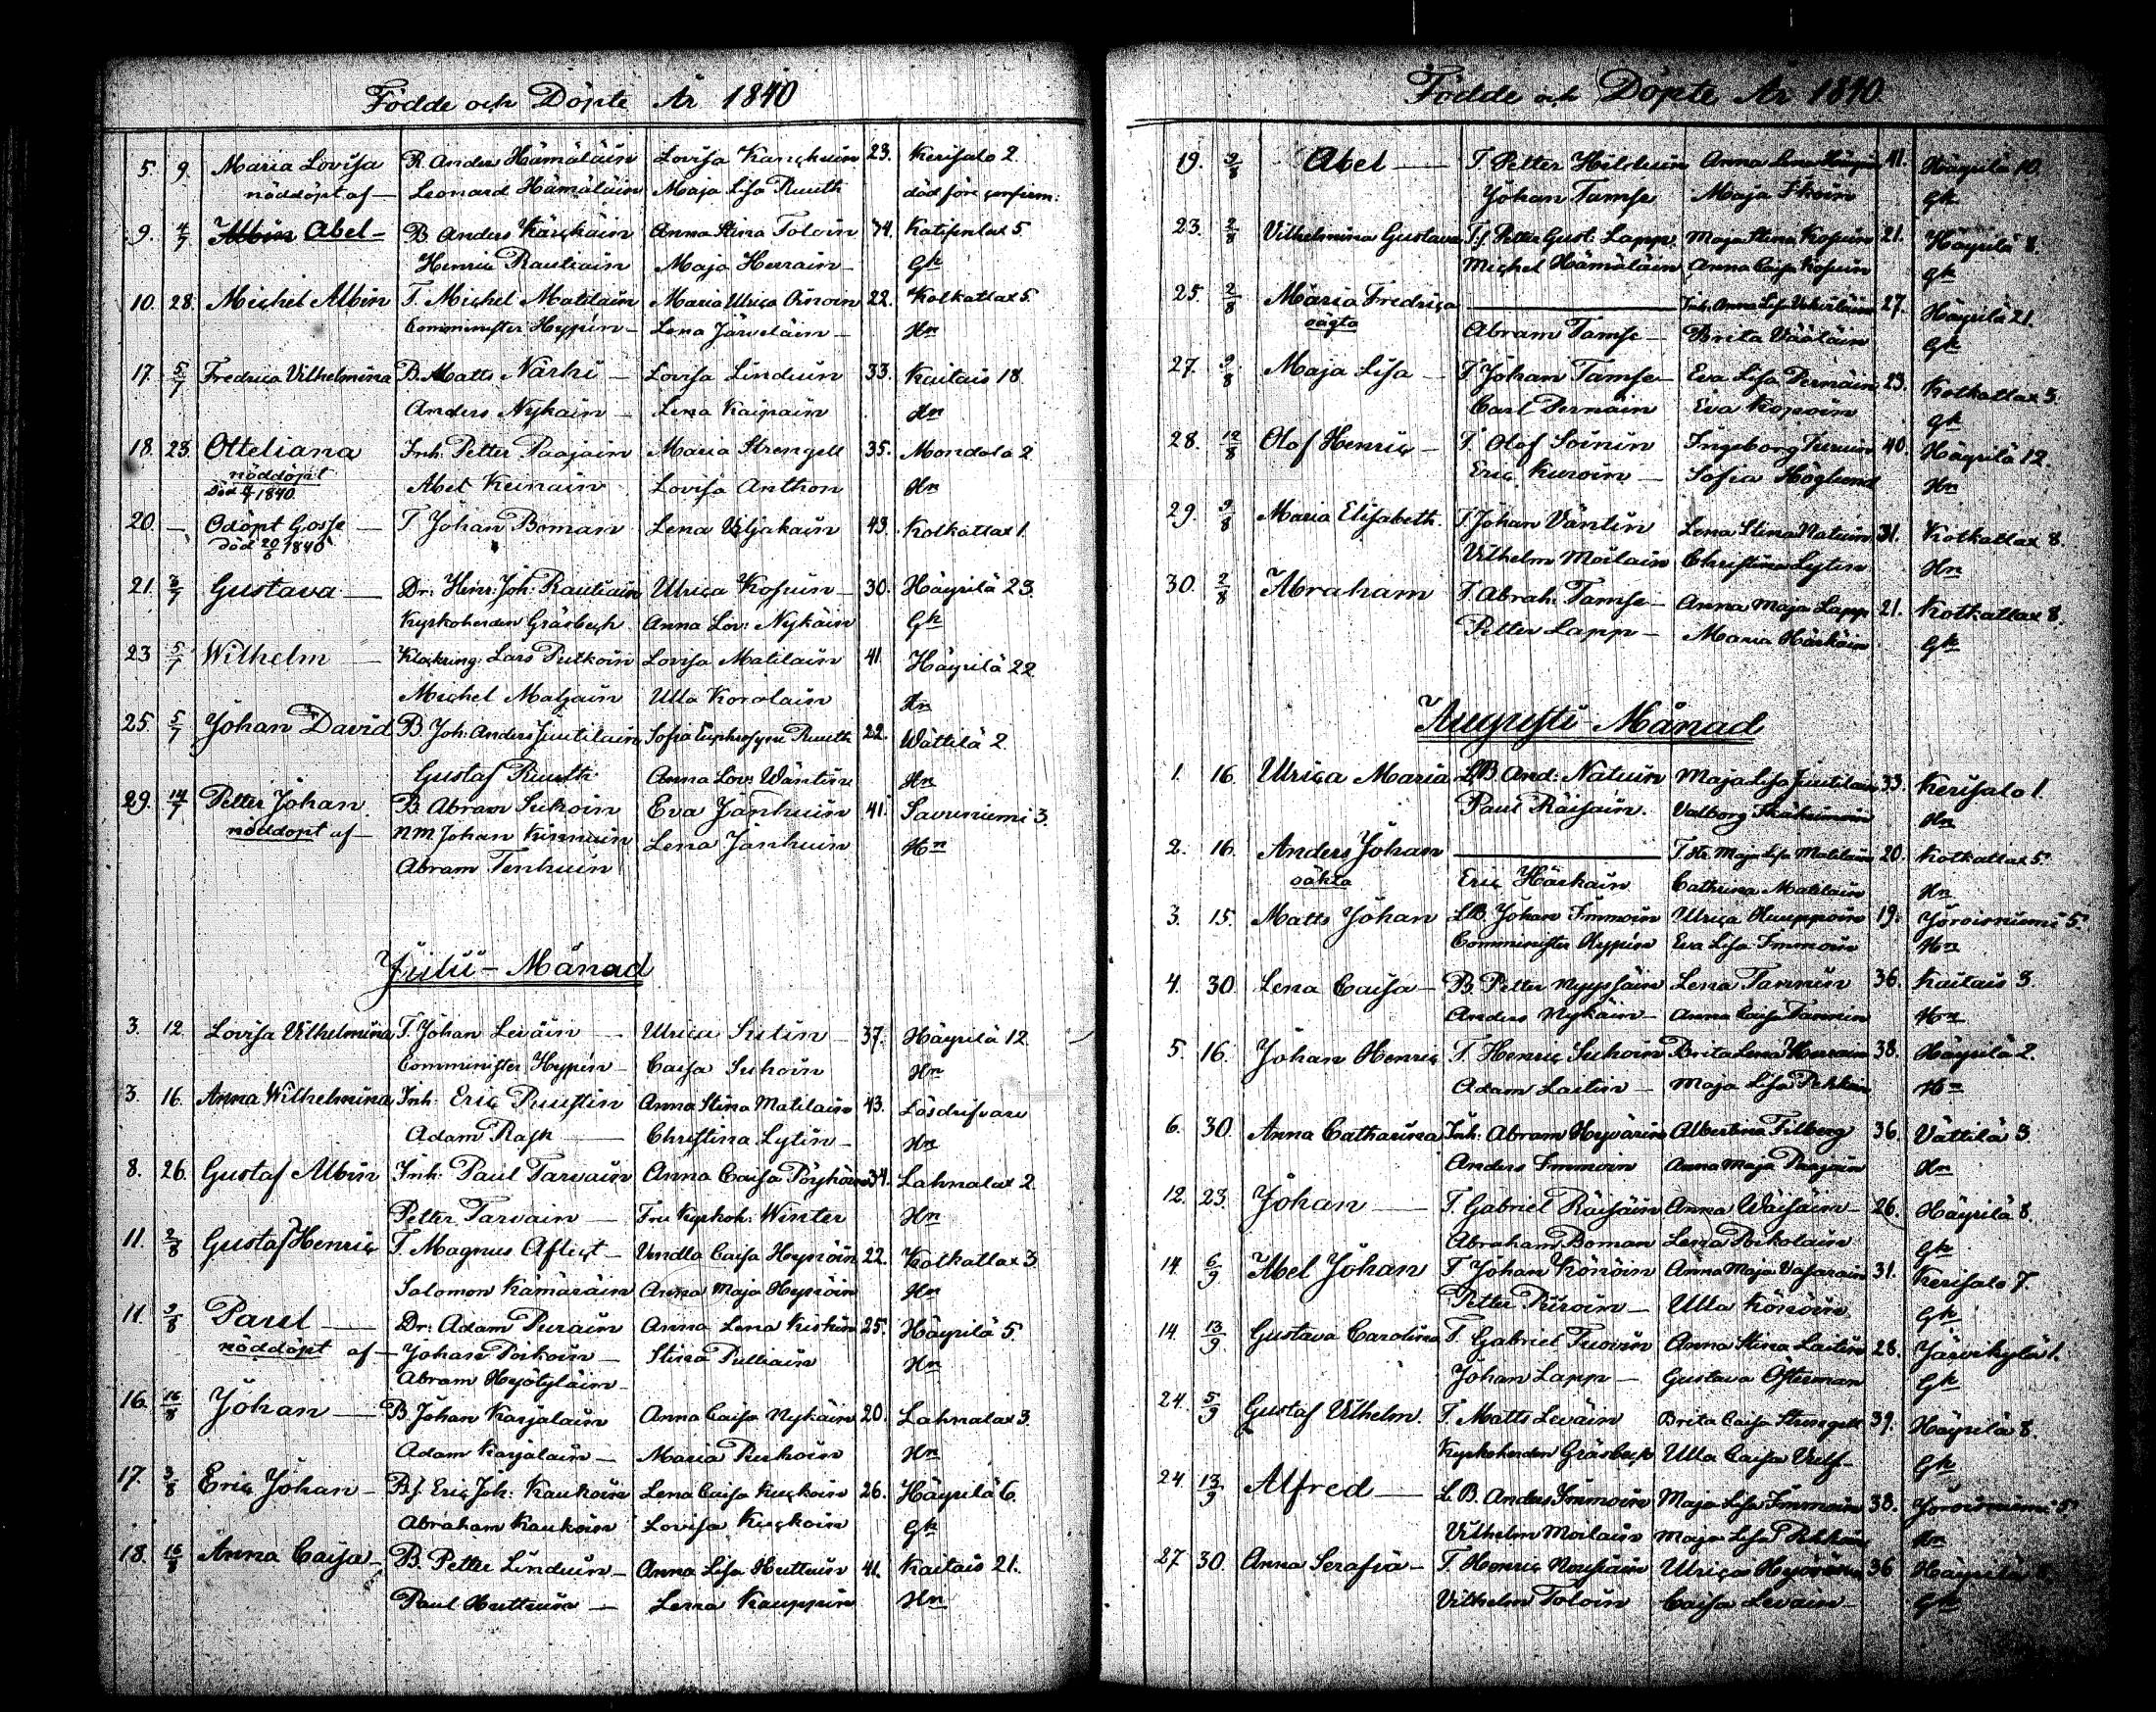 Födde och Döpte År 1840
5. 9. Maria Lovisa R. Anders Hämäläin Lovisa Kanckuin 23. Kerisalo 2.
nöddöpt af — Leonard Hämäläin Maja Lisa Ruuth död före confirm:
9. 4/7 Albin Abel — B. Anders Känckäin Anna Stina Toloin 74. Katisenlax 5.
Henric Rautiain Maja Herrain — Gk
10. 28. Michel Albin T. Michel Matilain Maria Ulrica Oinoin 22. Kotkatlax 5.
Comminister Hypén — Lena Järveläin — Hn
17. 5/7 Fredrica Vilhelmina B. Matts Närhi — Lovisa Linduin 33. Kaitais 18.
Anders Nykäin — Lena Kaipain Hn
18. 28. Otteliana Inh. Petter Paajain Maria Strengell 35. Mondola 2.
nöddöpt Abel Keinäin Lovisa Anthon Hn
Död 4/7 1840
20. — Odöpt Gosse — T. Johan Boman Lena Viljakain 43. Kotkatlax 1.
död 20/6 1840
21. 3/7 Gustava — Dr: Henr: Joh: Rautiain Ulrica Kosuin — 30. Häyrilä 23.
Kyrkoherden Gräsbeck Anna Lov: Nykäin Gk
23 5/7 Wilhelm — Klockring: Lars Putkoin Lovisa Matilain 41 Häyrilä 22.
Michel Maljain Ulla Korolain Hn
25. 5/7 Johan David B. Joh: Anders Juutilain Sofia Euphrosyne Ruuth 22. Wättilä 2.
Gustaf Ruuth Anna Lov: Wäntin Hn
29. 14/7 Petter Johan B. Abram Sutoin Eva Jänhuin 41. Savuniemi 3.
nöddöpt af — NM Johan Kinnuin Lena Jänhuin Hn
Abram Tenhuin
Julii - Månad
3. 12. Lovisa Vilhelmina T. Johan Leväin — Ulrica Sutin — 37. Häyrilä 12.
Comminister Hypén — Caisa Suhoin Hn
3. 16. Anna Wilhelmina Inh: Eric Puustin Anna Stina Matilain 43. Lösdrifvare
Adam Rask — Christina Lytin — Hn
8. 26. Gustaf Albin Inh: Paul Tarvain Anna Caisa Pöyhöin 34. Lahnalax 2.
Petter Tarvain — Fru Kyrkoh: Winter Hn
11. 2/8 Gustaf Henric T. Magnus Aflect — Vendla Caisa Heynöin 22. Kotkatlax 3.
Salomon Kämäräin Anna Maja Heynöin Hn
11. 9/8 Paul — Dr: Adam Puräin Anna Lena Kiskin 25. Häyrilä 5.
nöddöpt af — Johan Parkoin — Stina Pulliain Hn
Abram Hyötyläin —
16. 16/8 Johan — B. Johan Karjalain Anna Caisa Nykäin 20. Lahnalax 3.
Adam Karjalain — Maria Purhoin Hn
17. 3/8 Eric Johan — Bs. Eric Joh: Kaukoin Lena Caisa Kuckoin 26. Häyrilä 6.
Abraham Kaukoin Lovisa Kuckoin Gk
18. 16/8 Anna Caisa — B. Petter Linduin — Anna Lisa Huttuin 41. Kaitais 21.
Paul Huttuin — Lena Kauppin Hn
Födde och Döpte År 1840.
19. 9/8 Abel — T. Petter Hilduin Anna Lena 41. Häyrilä 10.
Johan Tamse Maja Ikoin Gk
23. 2/8 Vilhelmina Gustava Ts. Petter Gust: Lapp Maja Stina Kosuin 21. Häyrilä 8.
Michel Hämäläin Anna Caisa Kosuin Gk
25. 2/8 Maria Fredrica — Inh. Anna Lisa 27. Häyrilä 21.
oägta Abram Tamse — Brita Vääläin Gk
27. 9/8 Maja Lisa — T. Johan Tamse — Eva Lisa Pernäin 23. Kotkatlax 5.
Carl Pernäin Eva Kopoin Gk
28. 12/8 Olof Henric — T. Olof Soinin Ingeborg Puruin 40. Häyrilä 12.
Eric Kuroin — Sofia Höglund Hn
29. 9/8 Maria Elisabeth. T. Johan Väntin Lena Stina Natuin 31. Kotkatlax 8.
Vilhelm Moilain Christina Lytin Hn
30. 2/8 Abraham T. Abrah. Tamse — Anna Maja Lapp 21. Kotkatlax 8.
Petter Lapp — Maria Härköin Gk
Augusti - Månad
1. 16. Ulrica Maria LB. And: Natuin Maja Lisa Juutilain 33. Kerisalo 1.
Paul Räisäin. Valborg Hn
2. 16. Anders Johan — Maja Lisa Matilain 20. Kotkatlax 5.
oäkta Eric Härkäin Cathrina Matilain Hn
3. 15. Matts Johan LB. Johan Immoin Ulrica Kauppoin 19. Joroisniemi 5.
Comminister Hypén Eva Lisa Immoin Hn
4. 30. Lena Caisa — B. Petter Nyyssäin Lena Tannin 36. Kaitais 3.
Anders Nykäin — Anna Caisa Tannin Hn
5. 16. Johan Henric T. Henric Suhoin Brita Lena Herrain 38. Häyrilä 2.
Adam Laitin — Maja Lisa Pekkain Hn
6. 30. Anna Catharina Inh: Abram Hyvärin Albertina Tilberg 36. Vättilä 3.
Anders Immoin Anna Maja Paajain Hn
12. 23. Johan — T. Gabriel Räisäin Anna Wäisäin — 26. Häyrilä 8.
Abraham Boman Lena Porkolain Gk
14. 6/9 Abel Johan T. Johan Könöin Anna Maja Vasarain 31. Kerisalo 7.
Petter Puroin — Ulla Könöin Gk
14. 13/9 Gustava Carolina T. Gabriel Tuovin Anna Stina Laitin 28. Järvikylä 1.
Johan Lapp — Gustava Österman Gk
24. 5/9 Gustaf Vilhelm. T. Matts Leväin Brita Caisa Strengell 39. Häyrilä 8.
Kyrkoherden Gräsbeck Ulla Caisa Vulf — Gk
24. 13/9 Alfred — L.B. Anders Immoin Maja Lisa Immoin 38. Joroisniemi 5.
Vilhelm Moilain Maja Lisa Pekkain Hn
27 30. Anna Serafia — T. Henric Nousiain Ulrica 36 Häyrilä
Vilhelm Toloin Caisa Leväin — Gk